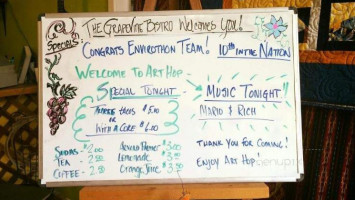 The Grapevine Bistro Welcomes You!
Specials
Congrats Envirothon Team! 10th in the Nation
Welcome to Art Hop
Special Tonight - Music Tonight!
$5.00
Mario & Rich
or
with a Coke $6.00
Sodas - $2.00
$3.00
Thank you for Coming!
Tea 2.50
Lemonade
Enjoy Art Hop
Coffee - 2.50
Orange Juice $3.50